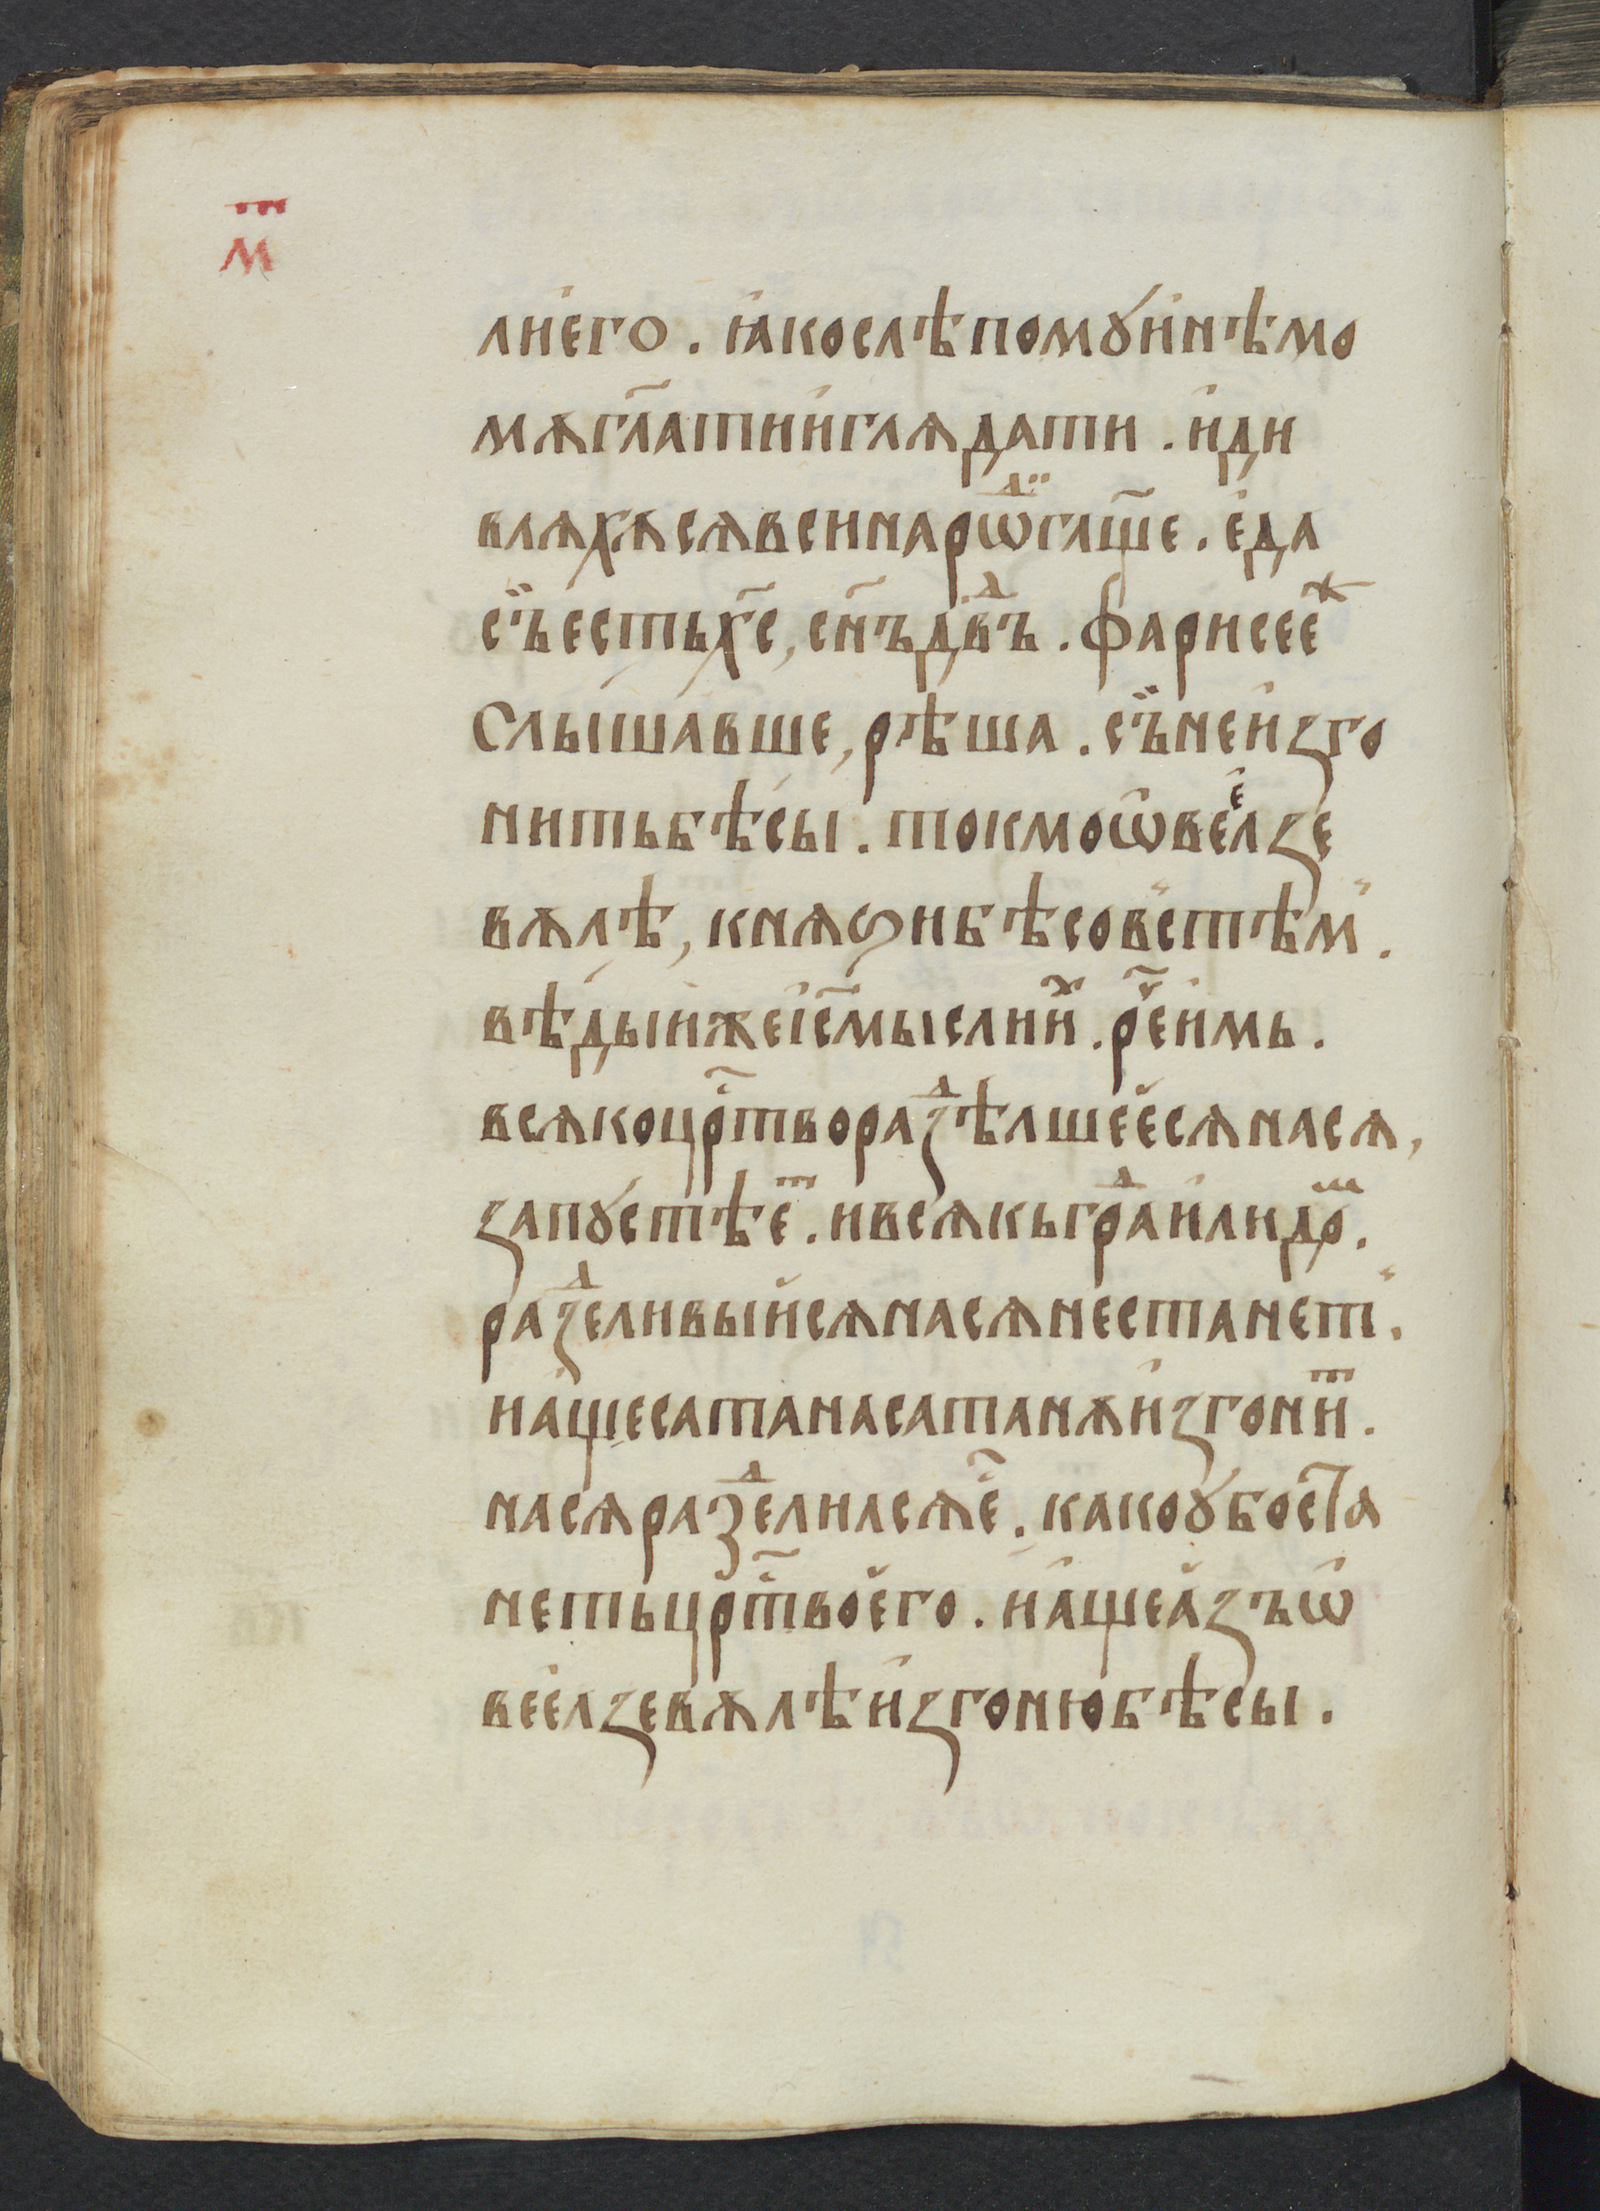 мт
лиего. ꙗкослѣпомꙋинѣмо
мѫгл҃атииглѧдати. иди
влѧхѫсѧвсинарⷣѡ҇глщ҃е. еда
съестьхс҃, сн҃ъдв҃ⷣъ. фарисееⷤ
Слышавше, рѣша. съ҇неизго
нитьбѣсы. токмоѡвеелзе
вѫлѣ, кнѧꙃибѣсовⸯстѣмⸯ.
вѣдыижеіс҃мыслииⷯ. рⷱ҇еимь.
всѧкоцр҃творазⷣѣлшеесѧнасѧ,
запꙋстѣеⷮ. ивсѧкьграⷣилидоⷨ.
разⷣеливыйсѧнасѧнестанетⸯ.
иащесатанасатанѫизгониⷮ.
насѧразⷣелилсѧе҃. какоꙋбоста
нетьцр҃твоего. иащеазъѡ
веелзевѫлѣизгонюбѣсы.